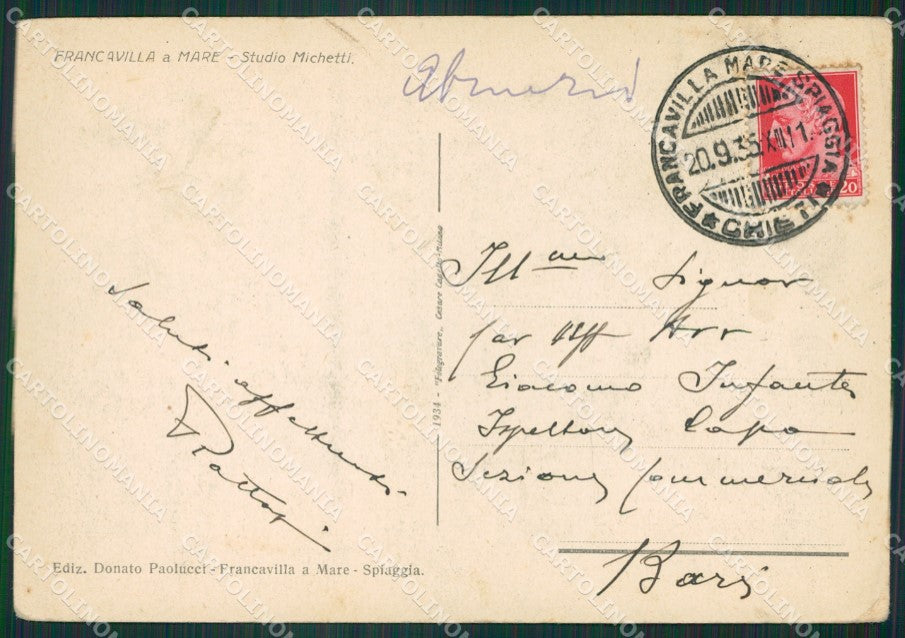 FRANCAVILLA a MARE - Studio Michetti.
Abruzzi
FRANCAVILLA MARE SPIAGGIA
20.9.35 XIII 1
* CHIETI *
20
Ill.mo Signor
Cav Uff Avv
Giacomo Infante
Ispettore Capo
Sezione Commerciale
Bari
Saluti affettuosi
1934 - "Fotogravure" Cesare Capello - Milano
Ediz. Donato Paolucci - Francavilla a Mare - Spiaggia.
CARTOLINOMANIA